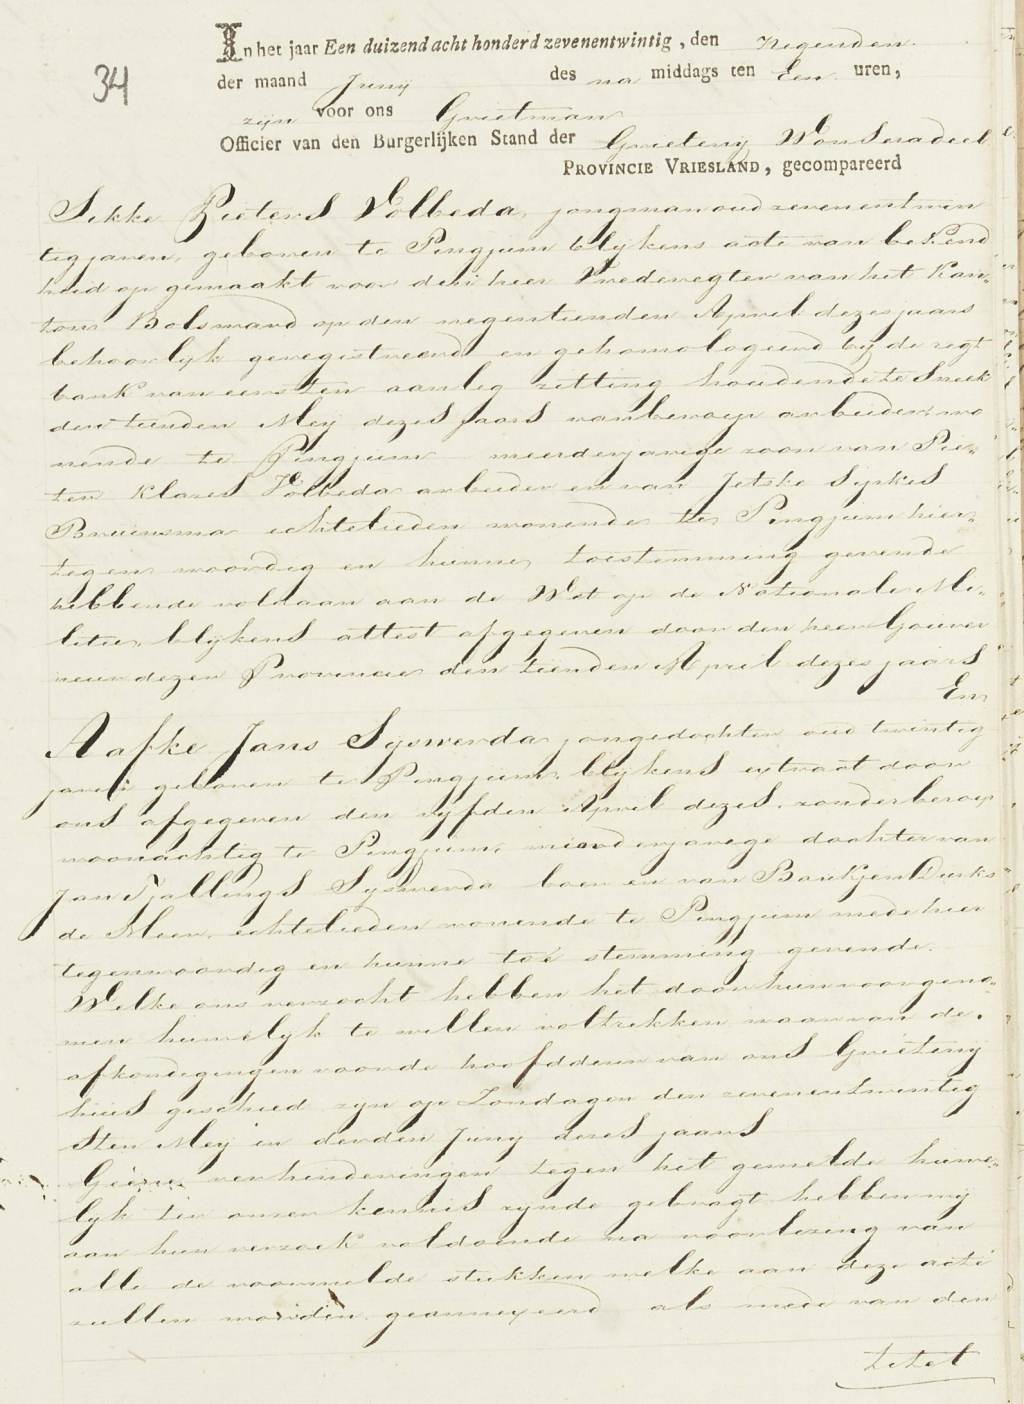 34
In het jaar Een duizend acht honderd zevenentwintig, den negenden
der maand Juny des na middags ten Een uren,
zijn voor ons Grietman
Officier van den Burgerlijken Stand der Grieteny Wonseradeel
PROVINCIE VRIESLAND, gecompareerd
Sikke Pieters Volbeda, jongman oud zevenentwin
tig jaren, geboren te Pingjum blykens acte van bekend
heid op gemaakt voor den heer Vrederegter van het Kan-
ton Bolsward op den negentienden April dezes jaars
behoorlyk geregistreerd en gehomologeerd by de regt
bank van eersten aanleg zitting houdende te Sneek
den tienden Mey dezes jaars van beroep arbeider, wo
nende te Pingjum meerderjarige zoon van Pie-
ter Klases Volbeda arbeider en van Jetske Sipkes
Bruinsma echtelieden wonende te Pingjum hier-
tegenwoordig en hunne toestemming gevende
hebbende voldaan aan de Wet op de Nationale Mi-
litie, blykens attest afgegeven door den heer Gouver
neur dezer Provincie den tienden April dezes jaars
En
Aafke Jans Syswerda jongedochter oud twintig
jaren geboren te Pingjum, blykens extract door
ons afgegeven den vyfden April dezes, zonder beroep
woonachtig te Pingjum, minderjarige dochter van
Jan Tjallings Syswerda boer en van Baukjen Durks
de Meer, echtelieden wonende te Pingjum mede hier
tegenwoordig en hunne toestemming gevende.
Welke ons verzocht hebben het door hun voorgeno-
men huwelyk te willen voltrekken waarvan de
afkondigingen voor de hoofddeur van ons Grieteny
huis geschied zyn op Zondagen den zevenentwintig
sten Mey en derden Juny dezes jaars
Geene verhinderingen tegen het gemelde huwe-
lyk ter onzer kennis zynde gebragt hebben wy
aan hun verzoek voldoende na voorlezing van
alle de voormelde stukken welke aan deze acte
zullen worden geannexeerd als mede van den
titel